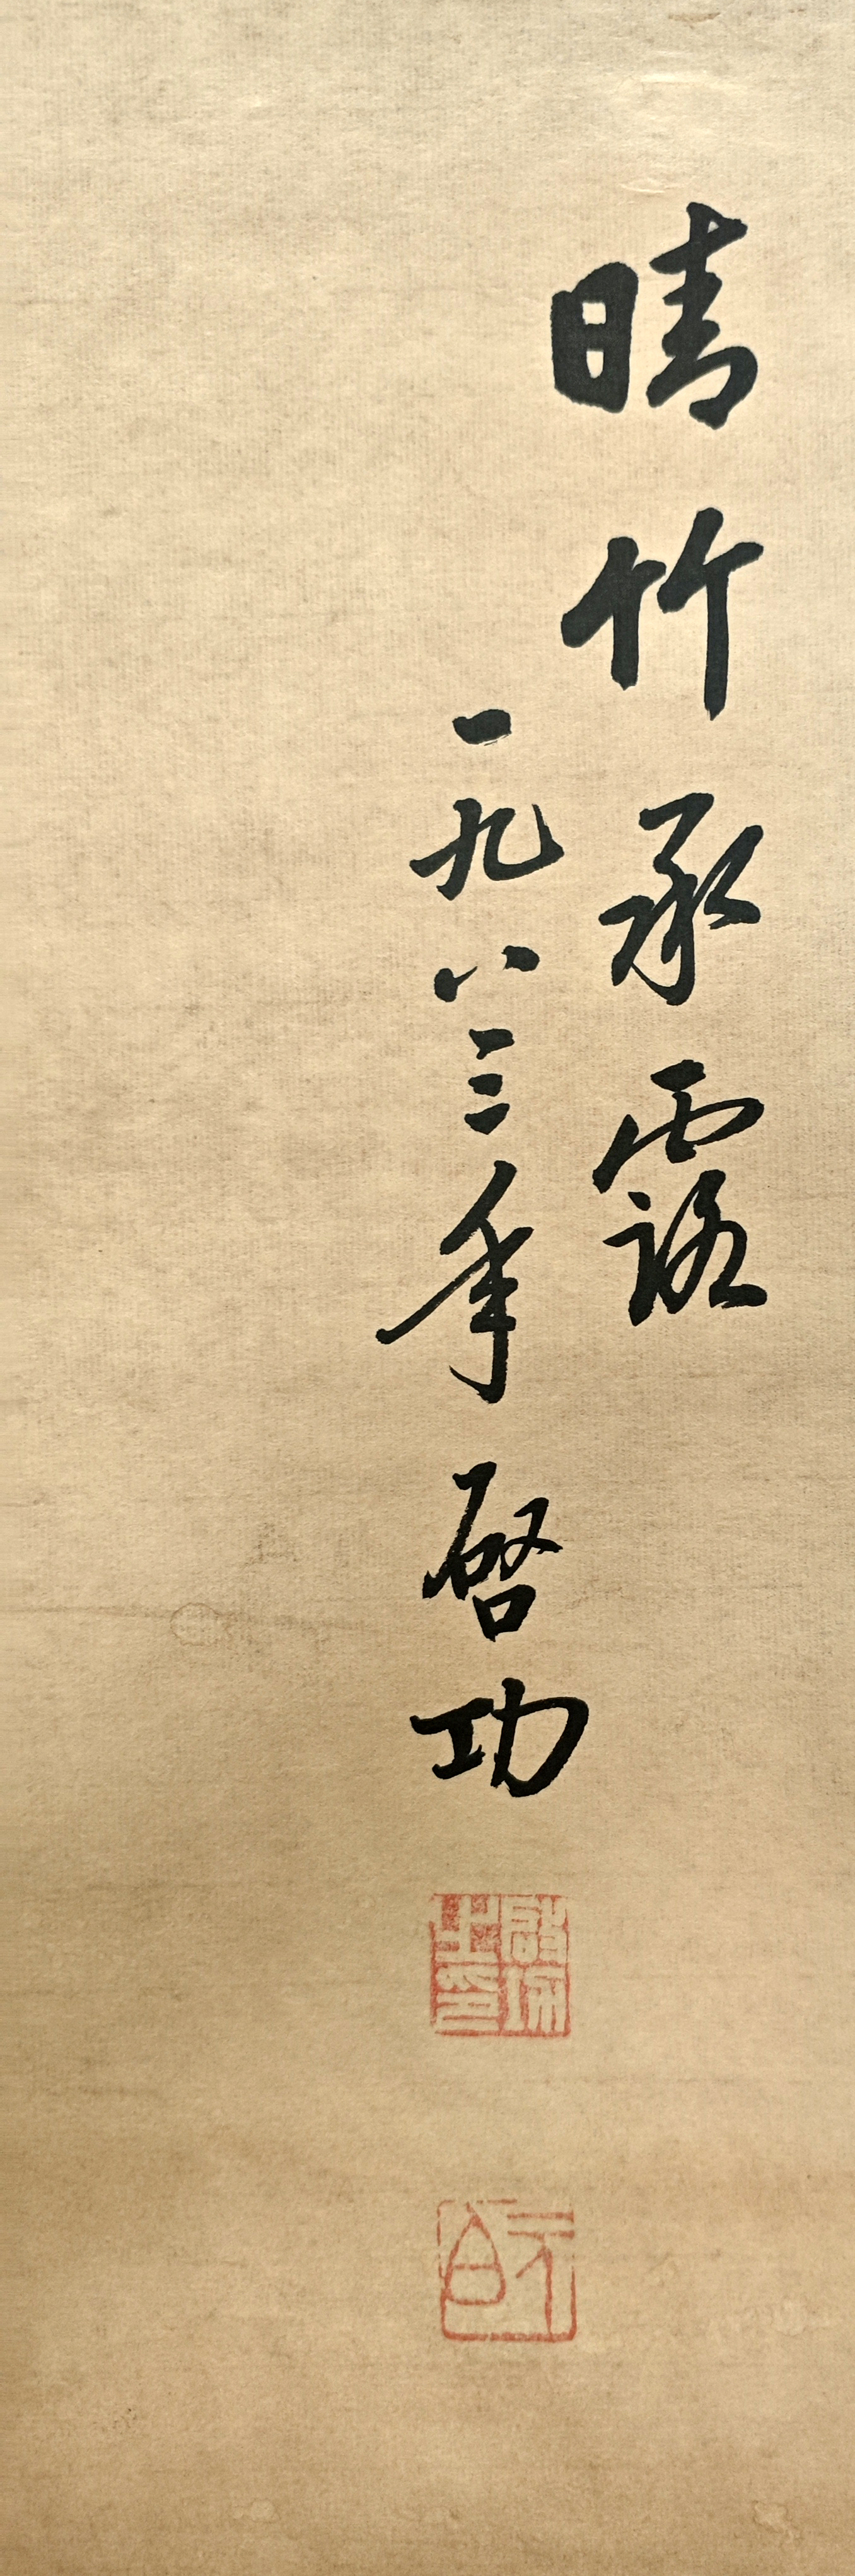 晴竹承露
一九八三年 启功
启功之印
元白